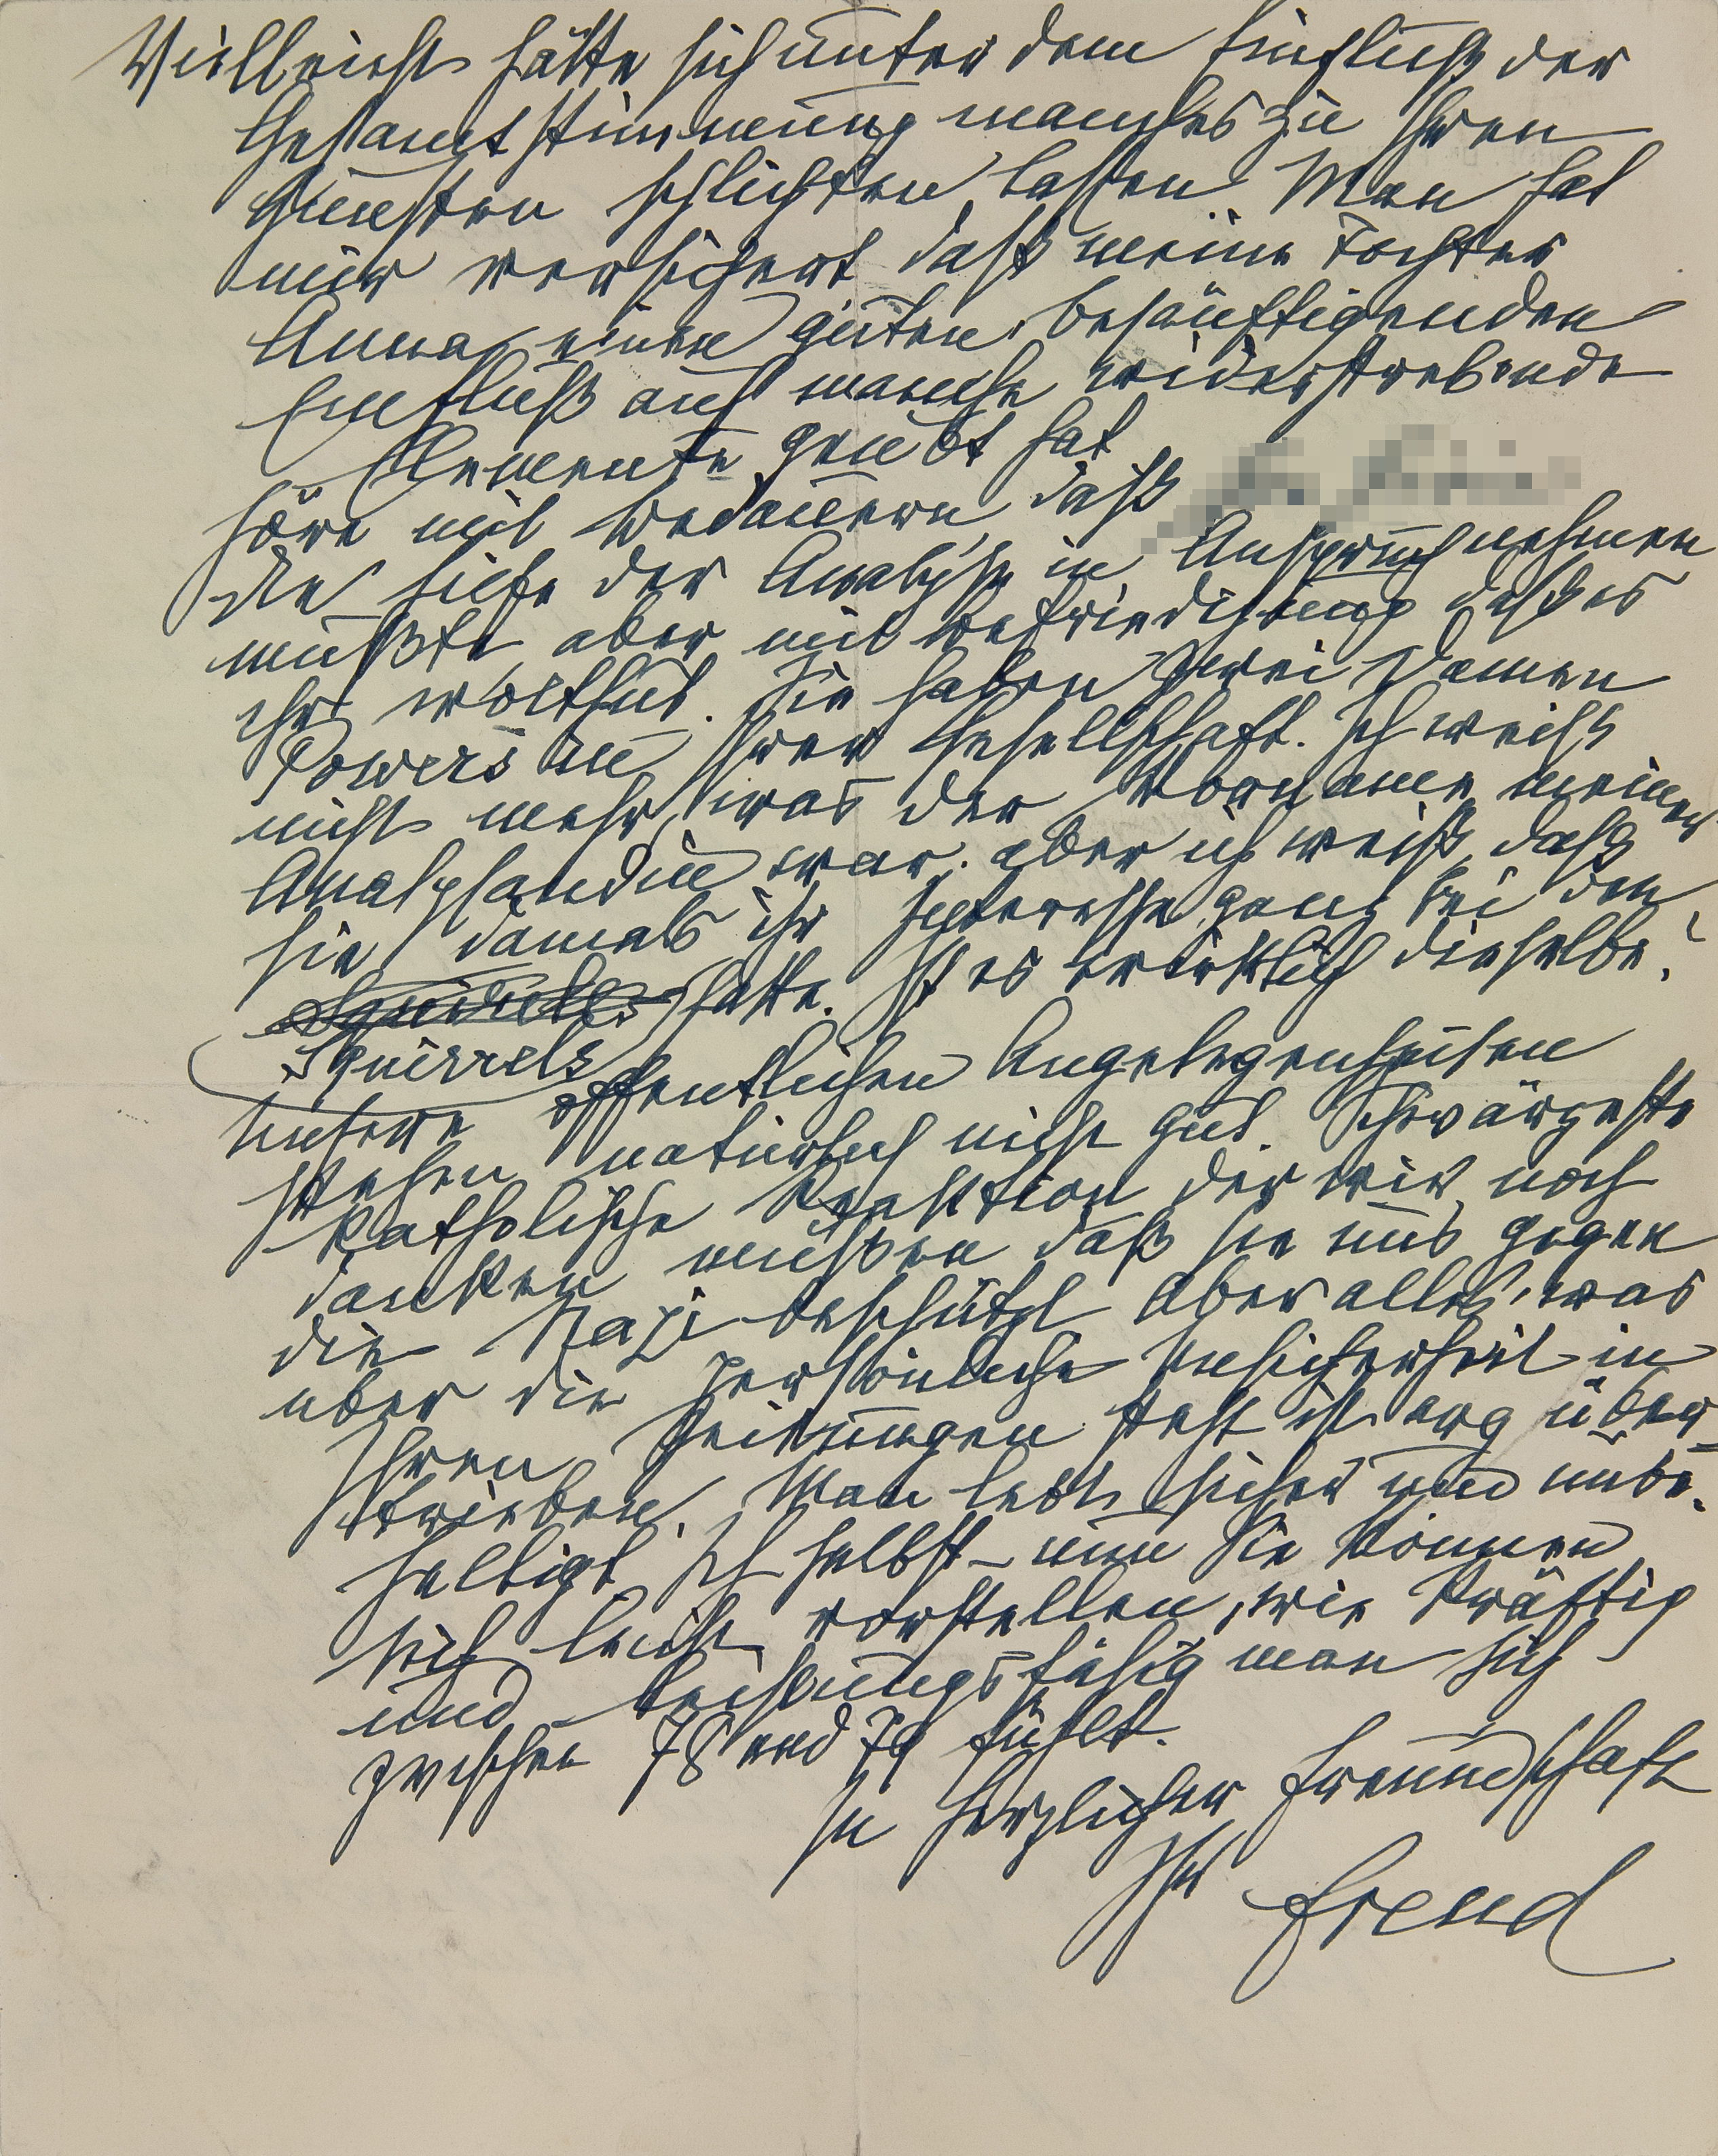 Vielleicht hätte sich unter dem Einfluß der
Gesamtstimmung manches zu Ihren
Gunsten schlichten lassen. Man hat
mir versichert daß meine Tochter
Anna einen guten, besänftigenden
Einfluß auf manche widerstrebende
Elemente geübt hat
höre mit Bedauern daß
die Hilfe der Analyse in Anspruch nehmen
mußte, aber mit Befriedigung daß es
ihr wohlthut. Sie haben zwei Damen
Powers in Ihrer Gesellschaft. Ich weiß
nicht mehr, was der Vorname meiner
Analysandin war, aber ich weiß, daß
sie damals ihr Interesse ganz bei den
Squirrels hatte. Ist es wirklich dieselbe?
Squirrels
Unsere öffentlichen Angelegenheiten
stehen natürlich nicht gut. Schwärzeste
katholische Reaktion der wir noch
danken müssen daß sie uns gegen
die Nazi beschützt. Aber alles, was
über die persönliche Unsicherheit in
Ihren Zeitungen steht ist arg über-
trieben. Man lebt sicher und unbe-
helligt. Ich selbst – nun Sie können
sich leicht vorstellen, wie kräftig
und leistungsfähig man sich
zwischen 78 und 79 fühlt.
In herzlicher Freundschaft
Ihr Freud